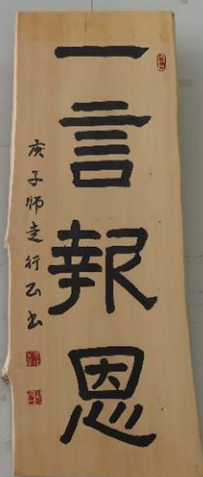 一言報恩
庚子師走行石書